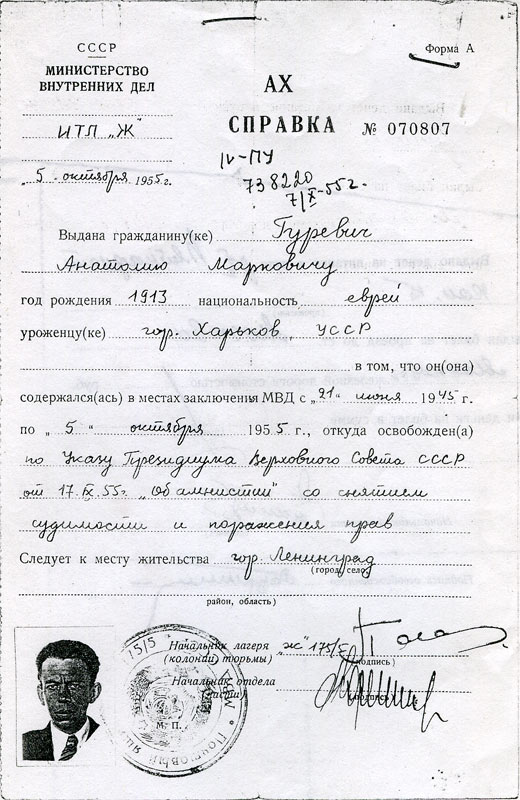 СССР
МИНИСТЕРСТВО
ВНУТРЕННИХ ДЕЛ
ИТЛ „Ж"
„5 октября 1955г.
Форма А
АХ
СПРАВКА № 070807
IV-ПУ
738220
7/X-55г.
Выдана гражданину(ке) Гуревич
Анатолию Марковичу
год рождения 1913 национальность еврей
уроженцу(ке) гор. Харьков, УССР
в том, что он(она)
содержался(ась) в местах заключения МВД с „21" июня 1945 г.
по „5" октября 1955 г., откуда освобожден(а)
по Указу Президиума Верховного Совета СССР
от 17.IX.55г. „Об амнистии" со снятием
судимости и поражения прав
Следует к месту жительства гор. Ленинград
(город, село)
район, область)
Начальник лагеря „Ж" 175/5
(колонии, тюрьмы)
(подпись)
Начальник отдела
(части)
(подпись)
М. П.
175/5
Почтовый ящик